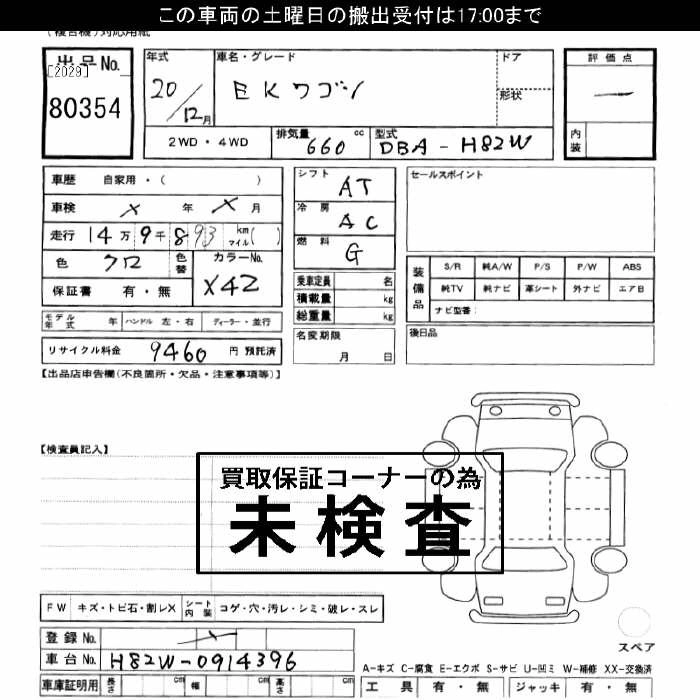 この車両の土曜日の搬出受付は17:00まで
(複合機)対応用紙
出品No.
[2029]
80354
年式
20/12月
車名・グレード
EKワゴン
ドア
形状
評価点
内装
2WD・4WD
排気量 660 cc
型式 DBA-H82W
車歴 自家用・( )
車検 × 年 × 月
走行 14万9千893 km マイル( )
色 クロ
色替
カラーNo. X42
保証書 有・無
シフト AT
冷房 AC
燃料 G
乗車定員 名
積載量 kg
総重量 kg
セールスポイント
装備品
S/R 純A/W P/S P/W ABS
純TV 純ナビ 革シート 外ナビ エアB
ナビ型番:
モデル年式 年 ハンドル 左・右 ディーラー・並行
名変期限
月 日
後日品
リサイクル料金 9460 円 預託済
【出品店申告欄(不良箇所・欠品・注意事項等)】
【検査員記入】
買取保証コーナーの為
未検査
FW キズ・トビ石・割レX シート内装 コゲ・穴・汚レ・シミ・破レ・スレ
スペア
登録No. ×
車台No. H82W-0914396
A-キズ C-腐食 E-エクボ S-サビ U-凹ミ W-補修 XX-交換済
車庫証明用 長さ cm 幅 cm 高さ cm
工具 有・無 ジャッキ 有・無